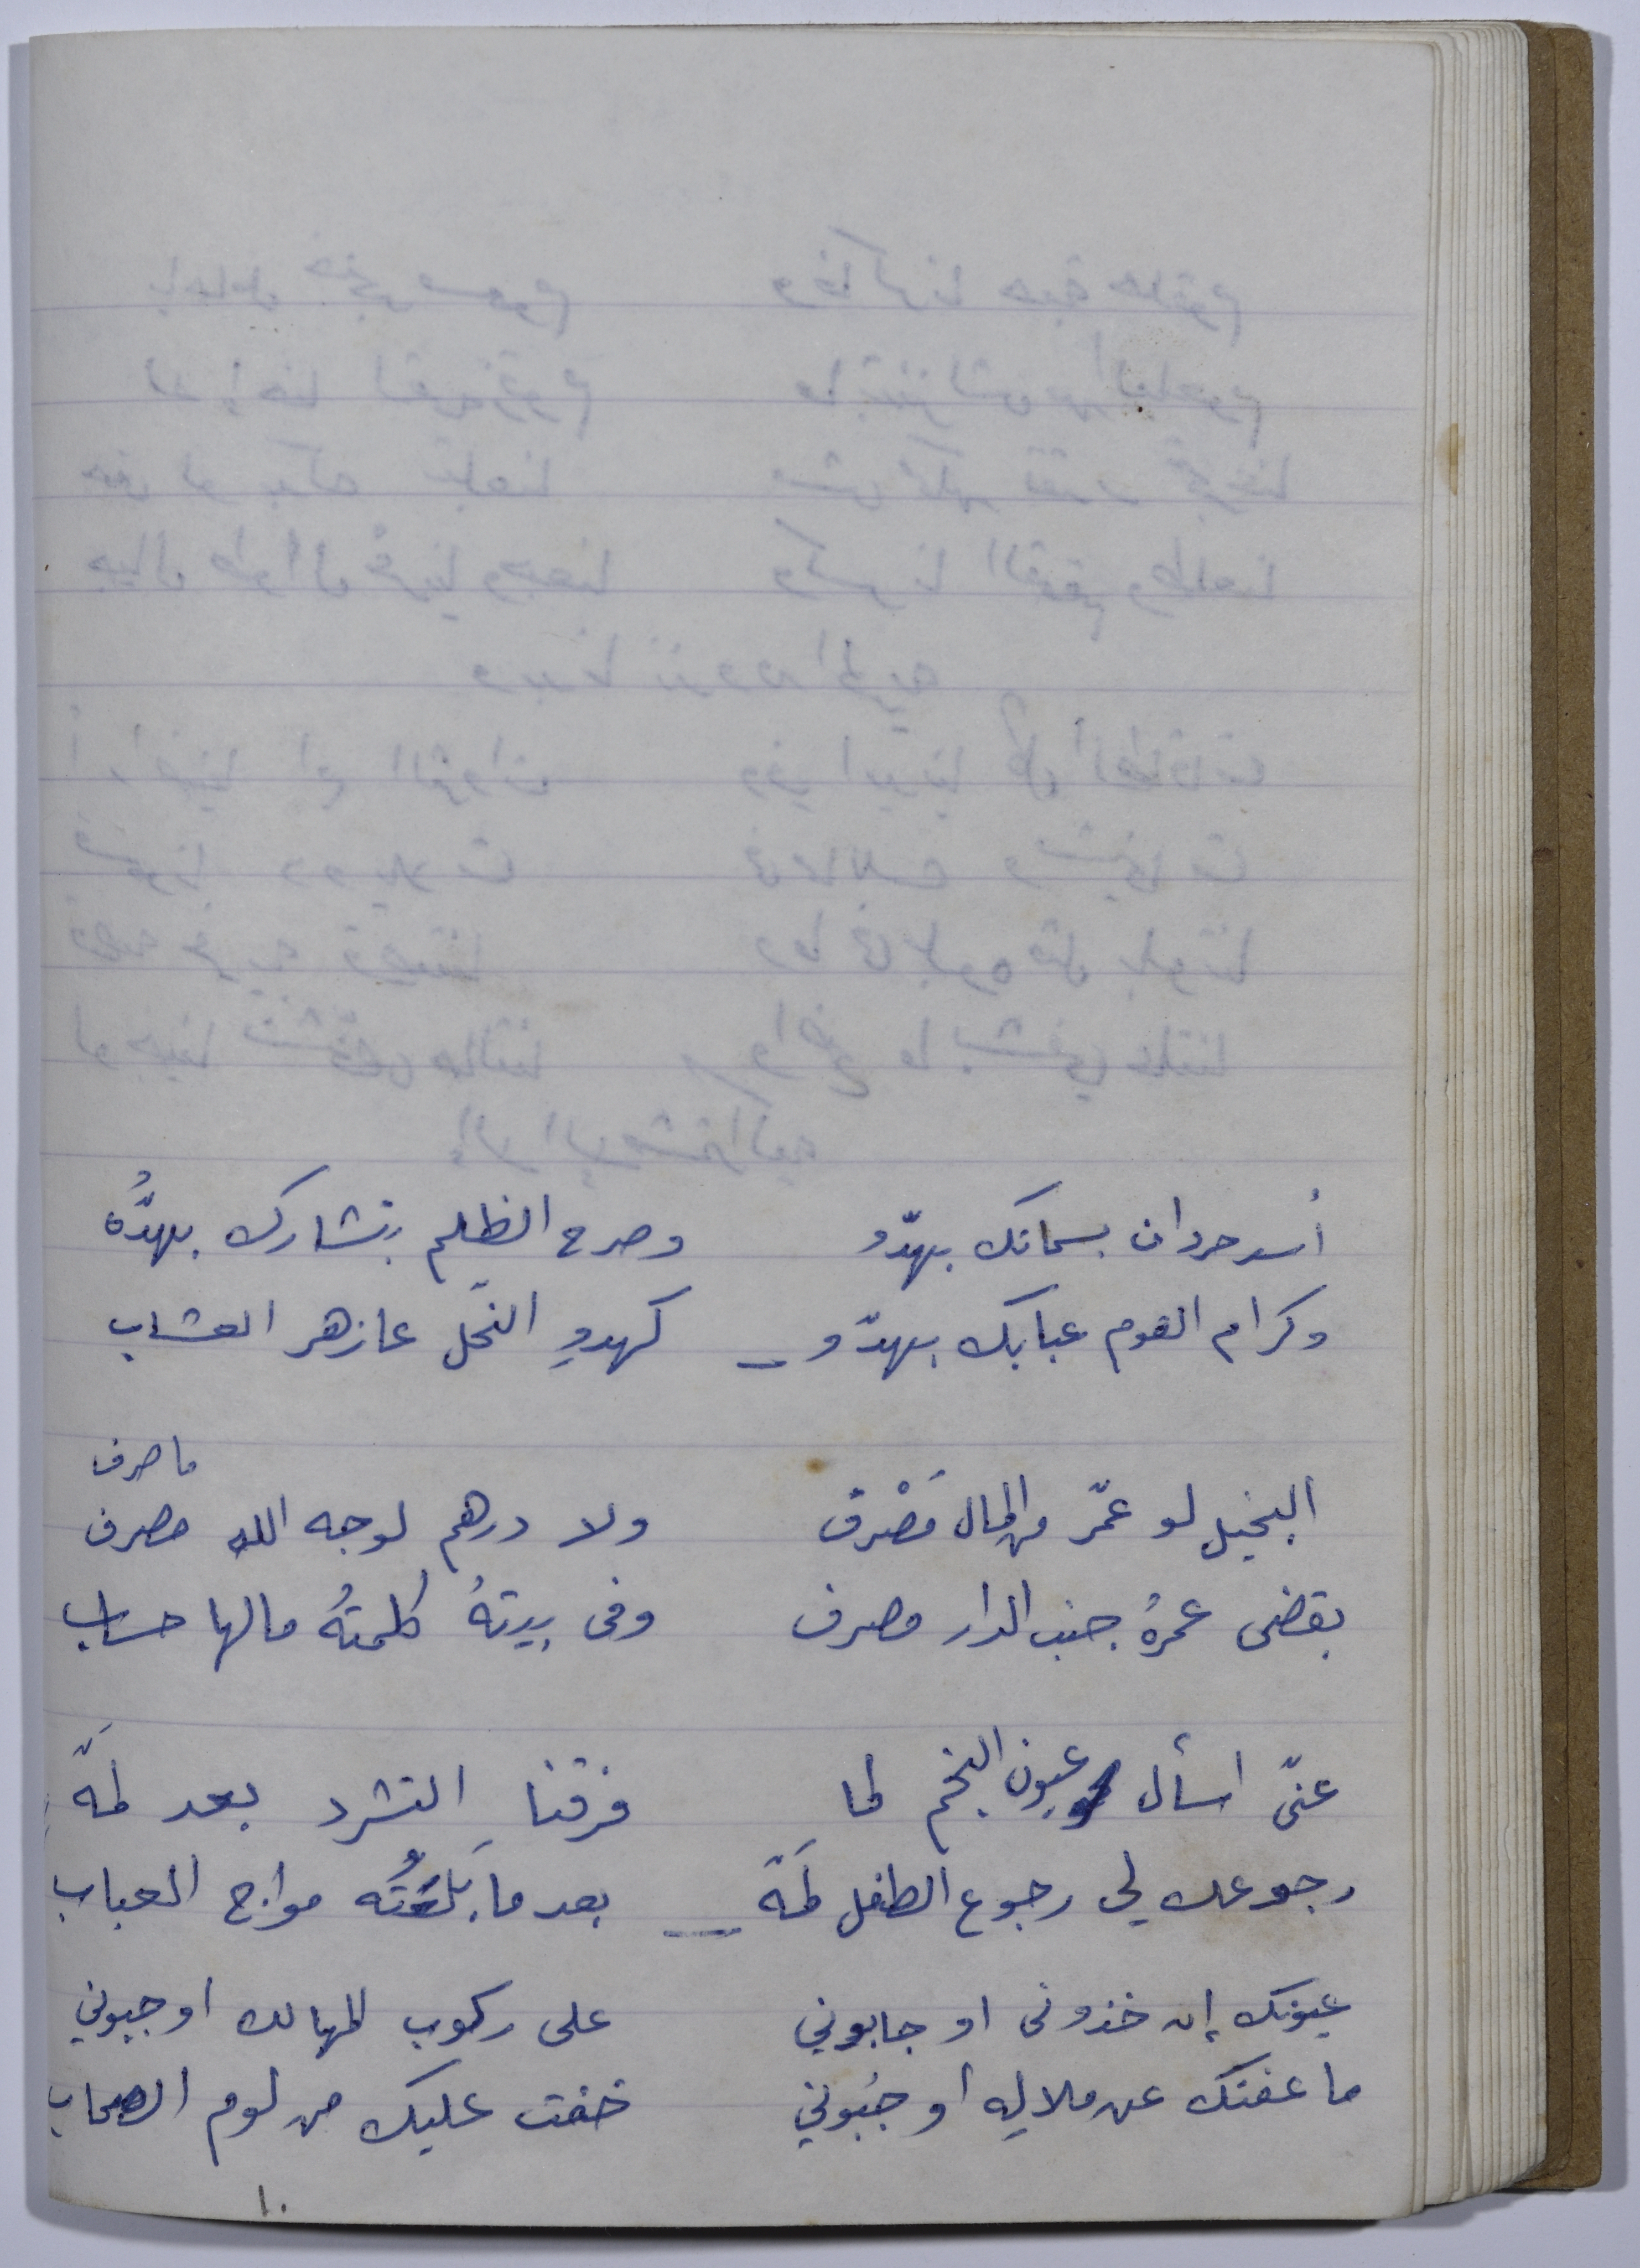 أسد حردان بسمانك بهدّو وصرح الظلم بتشارك بهدُّه
وكرام القوم عبابك بهدّو – كهدوِ النحل عازهر العشاب
ما صرف
البخيل لو عمّر من المال مَصْرف ولا درهم لوجه الله مصرف
بقضى عمرهُ جنب الدار مصرف وفى بيتهُ كلمتهُ مالها حساب
عنّى اسأل عيون النجم لما فرقنا التشرد بعد لمّة
رجوعك لي رجوع الطفل لمّه – بعد ما بَلعَتُه مواج العباب
عيونك إن خذونى او جابوني على ركوب المهالك اوجبوني
ما عفتك عن ملاليه أو جبُوني خفت عليك من لوم الصحاب
١٠